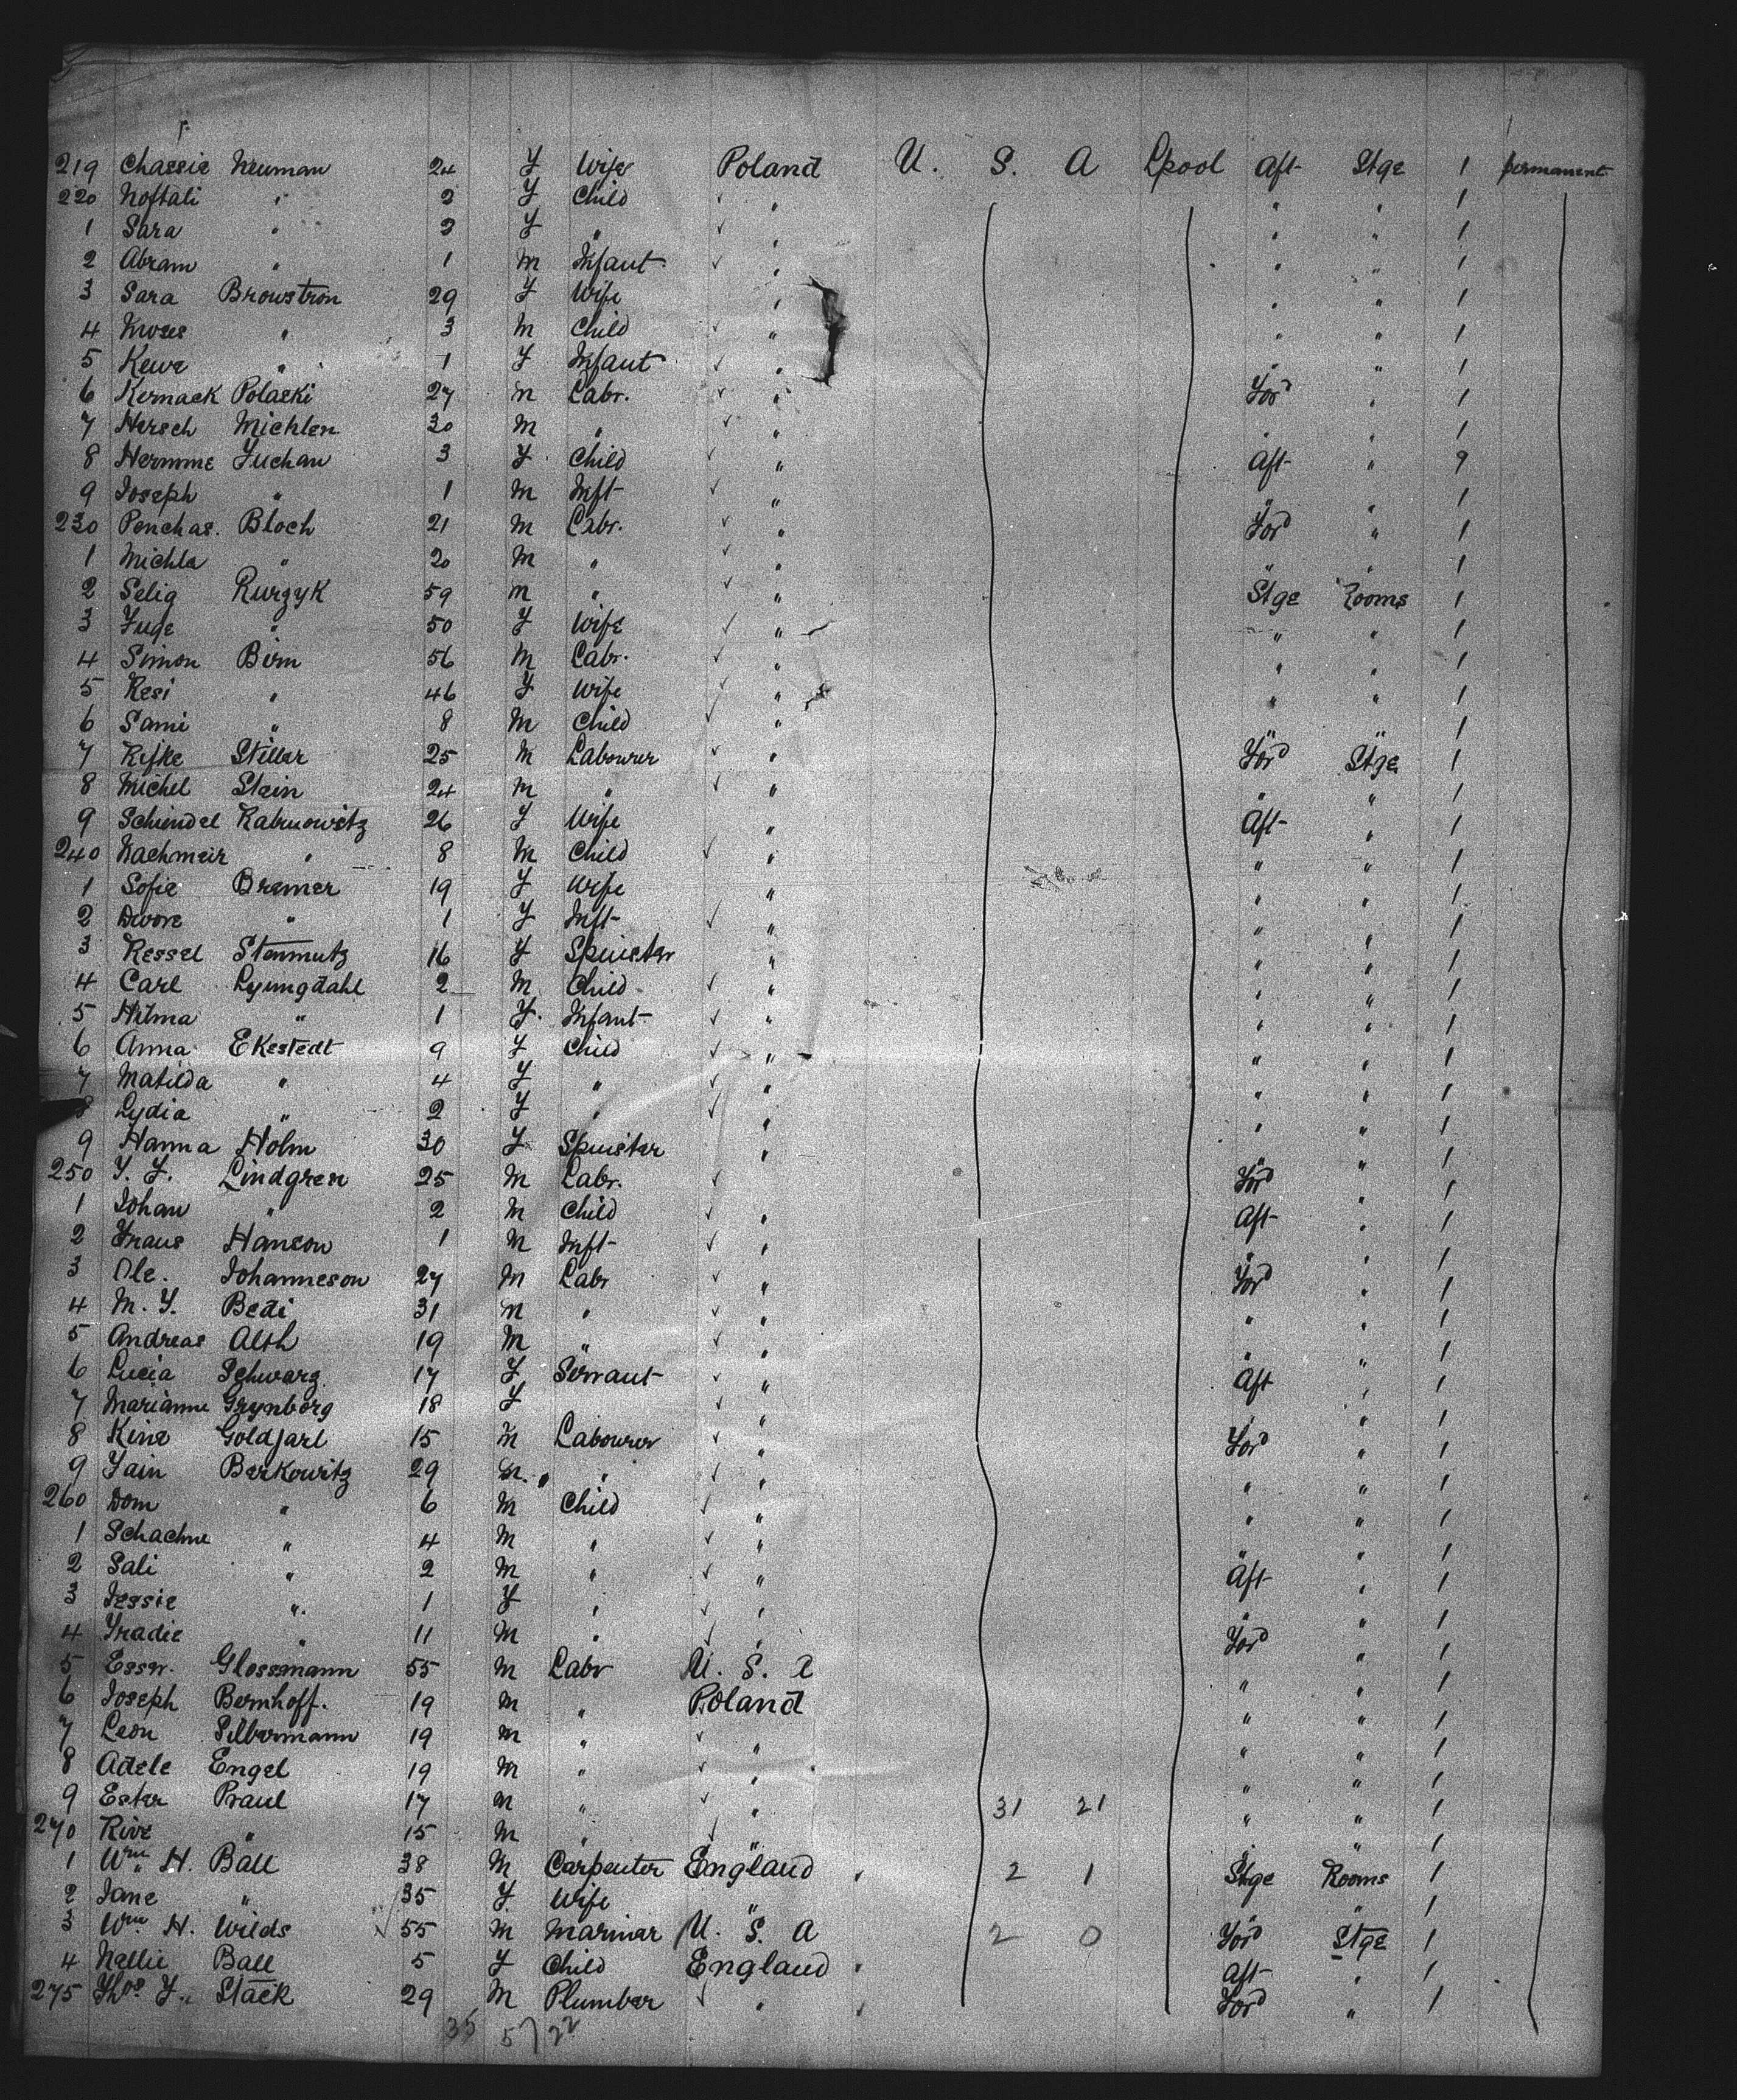 219 Chassie Neuman 24 F Wife Poland U. S. A Lpool Aft Stge 1 permanent
220 Noftali " 2 F Child ✓ " " " 1
1 Sara " 2 F " " " " 1
2 Abram " 1 M Infant ✓ " " " 1
3 Sara Browstron 29 F Wife " " " 1
4 Moses " 3 M Child ✓ " " " 1
5 Kewe " 1 F Infant ✓ " " " 1
6 Kernack Polaski 27 M Labr. ✓ " Ford " 1
7 Hersch Michlen 30 M " ✓ " " " 1
8 Hermme Fuchan 3 F Child ✓ " Aft " 9
9 Joseph " 1 M Inft ✓ " " " 1
230 Penchas. Bloch 21 M Labr. ✓ " Ford " 1
1 Michla " 20 M " ✓ " " " 1
2 Selig Rurzyk 59 M " ✓ " Stge Rooms 1
3 Fuge " 50 F Wife ✓ " " " 1
4 Simon Birn 56 M Labr. ✓ " " " 1
5 Resi " 46 F Wife ✓ " " " 1
6 Sami " 8 M Child ✓ " " " 1
7 Rifke Stiller 25 M Labourer ✓ " Ford Stge 1
8 Michel Stein 24 M " ✓ " " " 1
9 Schiendel Rabnowitz 26 F Wife " Aft " 1
240 Nachmeir " 8 M Child ✓ " " " 1
1 Sofie Bremer 19 F Wife " " " 1
2 Dwore " 1 F Inft ✓ " " " 1
3 Ressel Stenmutz 16 F Spinster " " " 1
4 Carl Lyungdahl 2 M Child ✓ " " " 1
5 Hilma " 1 F. Infant ✓ " " " 1
6 Anna Ekestedt 9 F Child ✓ " " " 1
7 Matilda " 4 F " ✓ " " " 1
8 Lydia " 2 F " ✓ " " " 1
9 Hanna Holm 30 F Spinster " " " 1
250 F. F. Lindgren 25 M Labr. ✓ Ford " 1
1 Johan " 2 M Child ✓ " Aft " 1
2 Frans Hanson 1 M Inft ✓ " " " 1
3 Ole. Johanneson 27 M Labr ✓ " Ford " 1
4 M. F. Bedi 31 M " ✓ " " " 1
5 Andreas Alth 19 M " ✓ " " " 1
6 Lucia Schwarz 17 F Servant ✓ " Aft " 1
7 Marianne Grynberg 18 F ✓ " " " 1
8 Kine Goldfarl 15 M Labourer ✓ " Ford " 1
9 Fain Berkowitz 29 M. " " ✓ " " " 1
260 Dom " 6 M Child ✓ " " " 1
1 Schachne " 4 M " ✓ " " " 1
2 Sali " 2 M " ✓ " Aft " 1
3 Jessie " 1 F " ✓ " " " 1
4 Fradie " 11 M " ✓ " Ford " 1
5 Esser. Glossmann 55 M Labr U. S. A " " 1
6 Joseph Bernhoff. 19 M " Poland " " 1
7 Leon Silbermann 19 M " ✓ " " " 1
8 Adele Engel 19 M " ✓ " " " 1
9 Ester Praul 17 M " ✓ " 31 21 " " 1
270 Rive " 15 M " ✓ " " " 1
1 Wm H. Ball 38 M Carpenter England " 2 1 Stge Rooms 1
2 Jane " 35 F. Wife " " " 1
3 Wm H. Wilds 55 M Mariner U. S. A 2 0 Ford Stge 1
4 Nellie Ball 5 F Child England " Aft " 1
275 Thos F. Stack 29 M Plumber ✓ " " Ford " 1
35 57 22